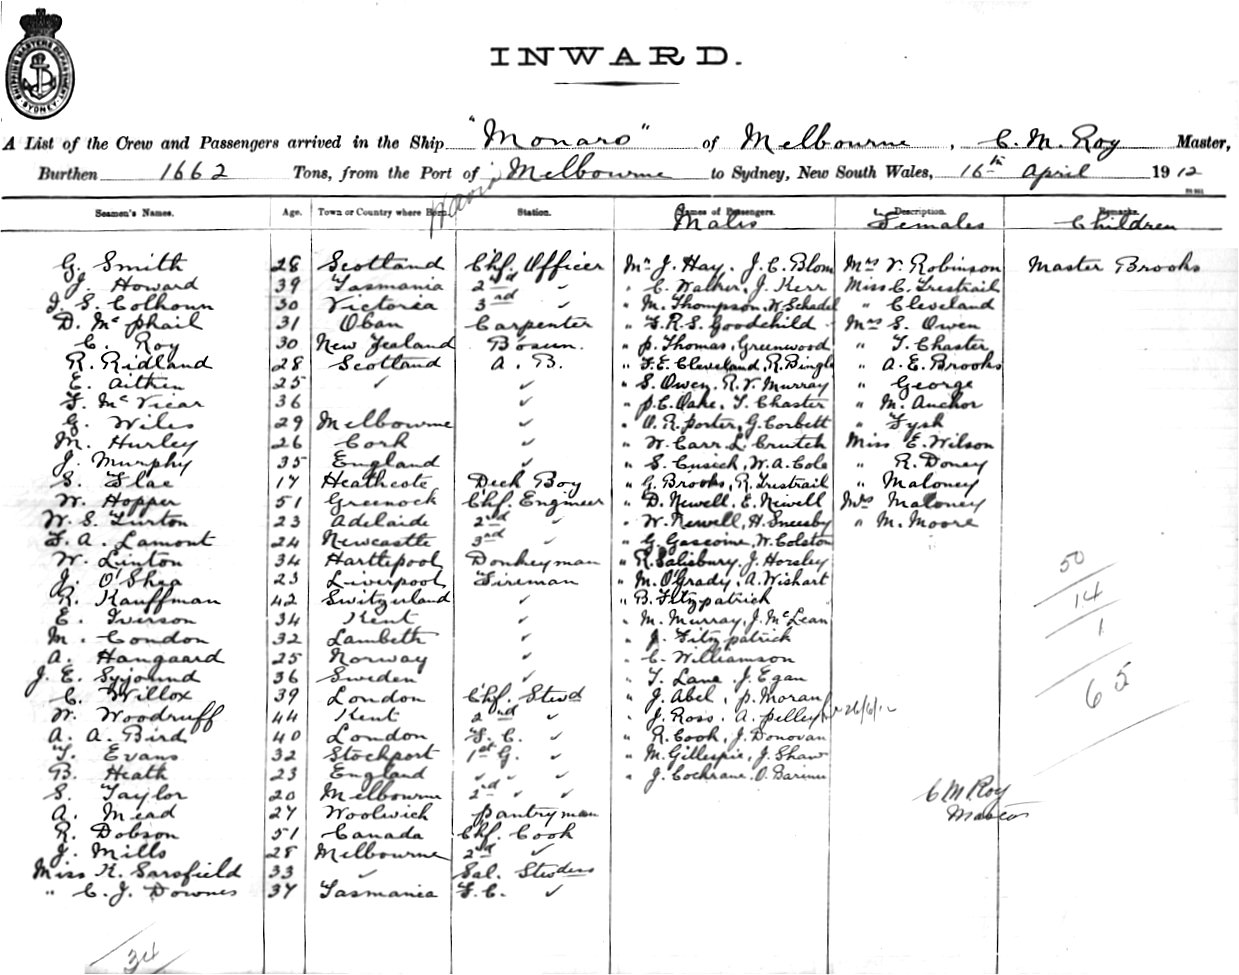 SHIPPING MASTERS DEPARTMENT SYDNEY
INWARD.
A List of the Crew and Passengers arrived in the Ship "Monaro" of Melbourne, C. M. Roy Master,
Burthen 1662 Tons, from the Port of Melbourne to Sydney, New South Wales, 16th April 1912
Seamen's Names. Age. Town or Country where Born. Station. Names of Passengers. Description. Remarks.
Males Females Children
G. Smith 28 Scotland Chf. Officer Mr J. Hay. J. C. Blom Mrs V. Robinson Master Brooks
J. Howard 39 Tasmania 2nd " " C. Walker, J. Kerr Miss C. Trestrail
J. S. Colhoun 30 Victoria 3rd " " M. Thompson, W. Schadel " Cleveland
D. McPhail 31 Oban Carpenter " F. R. S. Goodchild Mrs S. Owen
C. Roy 30 New Zealand Bosun. " P. Thomas, Greenwood " T. Chaster
R. Ridland 28 Scotland A. B. " F. E. Cleveland, R. Bingle " A. E. Brooks
E. Aitken 25 ✓ ✓ " S. Owen, R. V. Murray " George
F. McVicar 36 ✓ " P. C. Oake, T. Chaster " M. Anchor
G. Wiles 29 Melbourne ✓ " O. R. Porter, G. Corbett " Fysh
M. Hurley 26 Cork ✓ " W. Carr. L. Crutch Miss E. Wilson
J. Murphy 35 England ✓ " S. Cusick, W. A. Cole " R. Doney
S. Slae 17 Heathcote Deck Boy " G. Brooks, R. Trestrail " Maloney
W. Hopper 51 Greenock Chf. Engineer " D. Newell. E. Newell Mrs Maloney
W. S. Turton 23 Adelaide 2nd ✓ " W. Newell, H. Sneesby " M. Moore
F. A. Lamont 24 Newcastle 3rd ✓ " G. Gascoine, W. Colston
W. Linton 34 Hartlepool Donkeyman " R. Salisbury. J. Horsley 50
J. O'Shea 23 Liverpool Fireman " M. O'Grady, A. Wishart
R. Kauffman 42 Switzerland ✓ " B. Fitzpatrick 14
E. Iverson 34 Kent ✓ " M. Murray, J. McLean
M. Condon 32 Lambeth ✓ " J. Fitzpatrick 1
A. Hangaard 25 Norway ✓ " C. Williamson
J. E. Syjound 36 Sweden ✓ " T. Lane. J. Egan 65
C. Willox 39 London Chf. Stwd " J. Abel, P. Moran
W. Woodruff 44 Kent 2nd ✓ " J. Ross. A. Pelley 26/6/12
A. A. Bird 40 London F. C. ✓ " R. Cook, J. Donovan
T. Evans 32 Stockport 1st G. ✓ " M. Gillespie, J. Shaw
B. Heath 23 England ✓ ✓ ✓ " J. Cochrane. O.
S. Taylor 20 Melbourne 2nd ✓ ✓ C M Roy
A. Mead 27 Woolwich Pantryman Master
R. Dobson 51 Canada Chf. Cook
J. Mills 28 Melbourne 2nd ✓
Miss K. Sarsfield 33 ✓ Sal. Stwdess
" C. J. Downes 37 Tasmania F. C. ✓
34